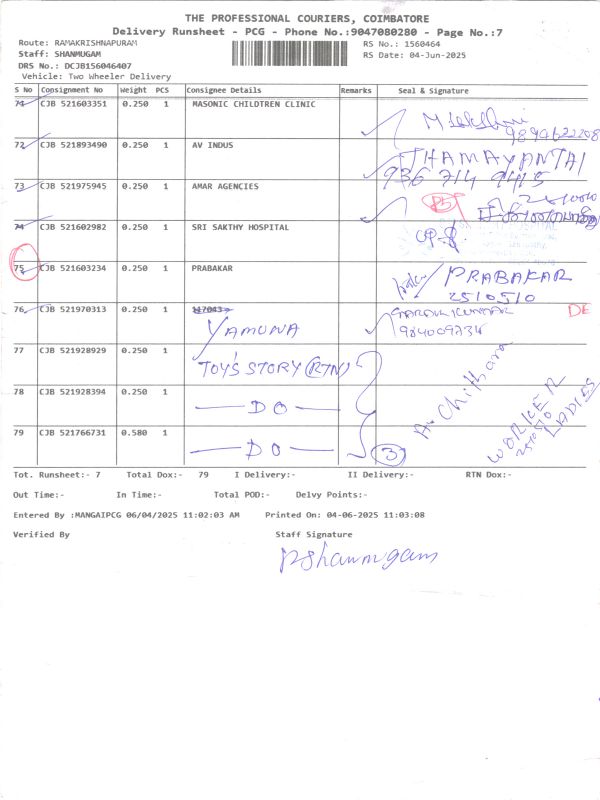 THE PROFESSIONAL COURIERS, COIMBATORE
Delivery Runsheet - PCG - Phone No.:9047080280 - Page No.:7
Route: RAMAKRISHNAPURAM
Staff: SHANMUGAM
DRS No.: DCJB156046407
Vehicle: Two Wheeler Delivery
RS No.: 1560464
RS Date: 04-Jun-2025
S No Consignment No Weight PCS Consignee Details Remarks Seal & Signature
71 CJB 521603351 0.250 1 MASONIC CHILDTREN CLINIC
72 CJB 521893490 0.250 1 AV INDUS THAMAYANTAI
936 714 9415
73 CJB 521975945 0.250 1 AMAR AGENCIES
74 CJB 521602982 0.250 1 SRI SAKTHY HOSPITAL
75 CJB 521603234 0.250 1 PRABAKAR PRABAKAR
2510510
76 CJB 521970313 0.250 1 117043 DE
YAMUNA
77 CJB 521928929 0.250 1 TOY'S STORY (RTN) A. Chithara
78 CJB 521928394 0.250 1 DO WORKER LADIES
79 CJB 521766731 0.580 1 DO 3
Tot. Runsheet:- 7 Total Dox:- 79 I Delivery:- II Delivery:- RTN Dox:-
Out Time:- In Time:- Total POD:- Delvy Points:-
Entered By :MANGAIPCG 06/04/2025 11:02:03 AM Printed On: 04-06-2025 11:03:08
Verified By Staff Signature
Pshanmugam